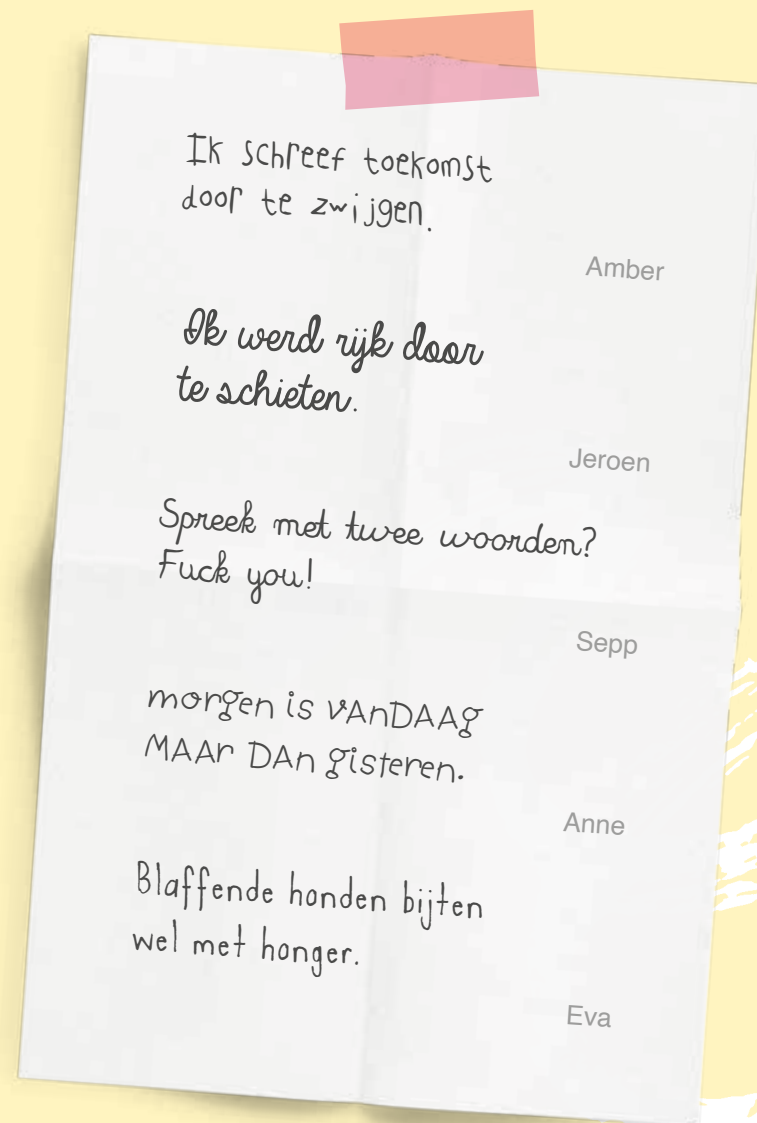 Ik schreef toekomst
door te zwijgen.
Amber
Ik werd rijk door
te schieten.
Jeroen
Spreek met twee woorden?
Fuck you!
Sepp
morgen is vAnDAAg
MAAr DAn gisteren.
Anne
Blaffende honden bijten
wel met honger.
Eva